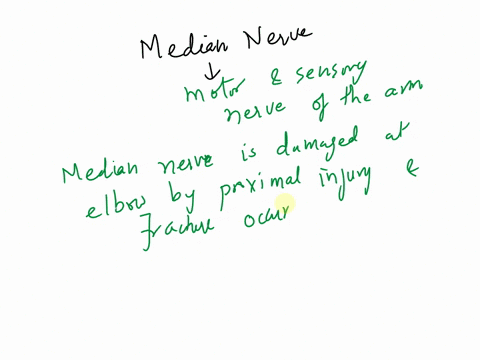 Median Nerve
↓
motor & sensory
nerve of the arm
Median nerve is damaged at
elbow by proximal injury &
fracture occur